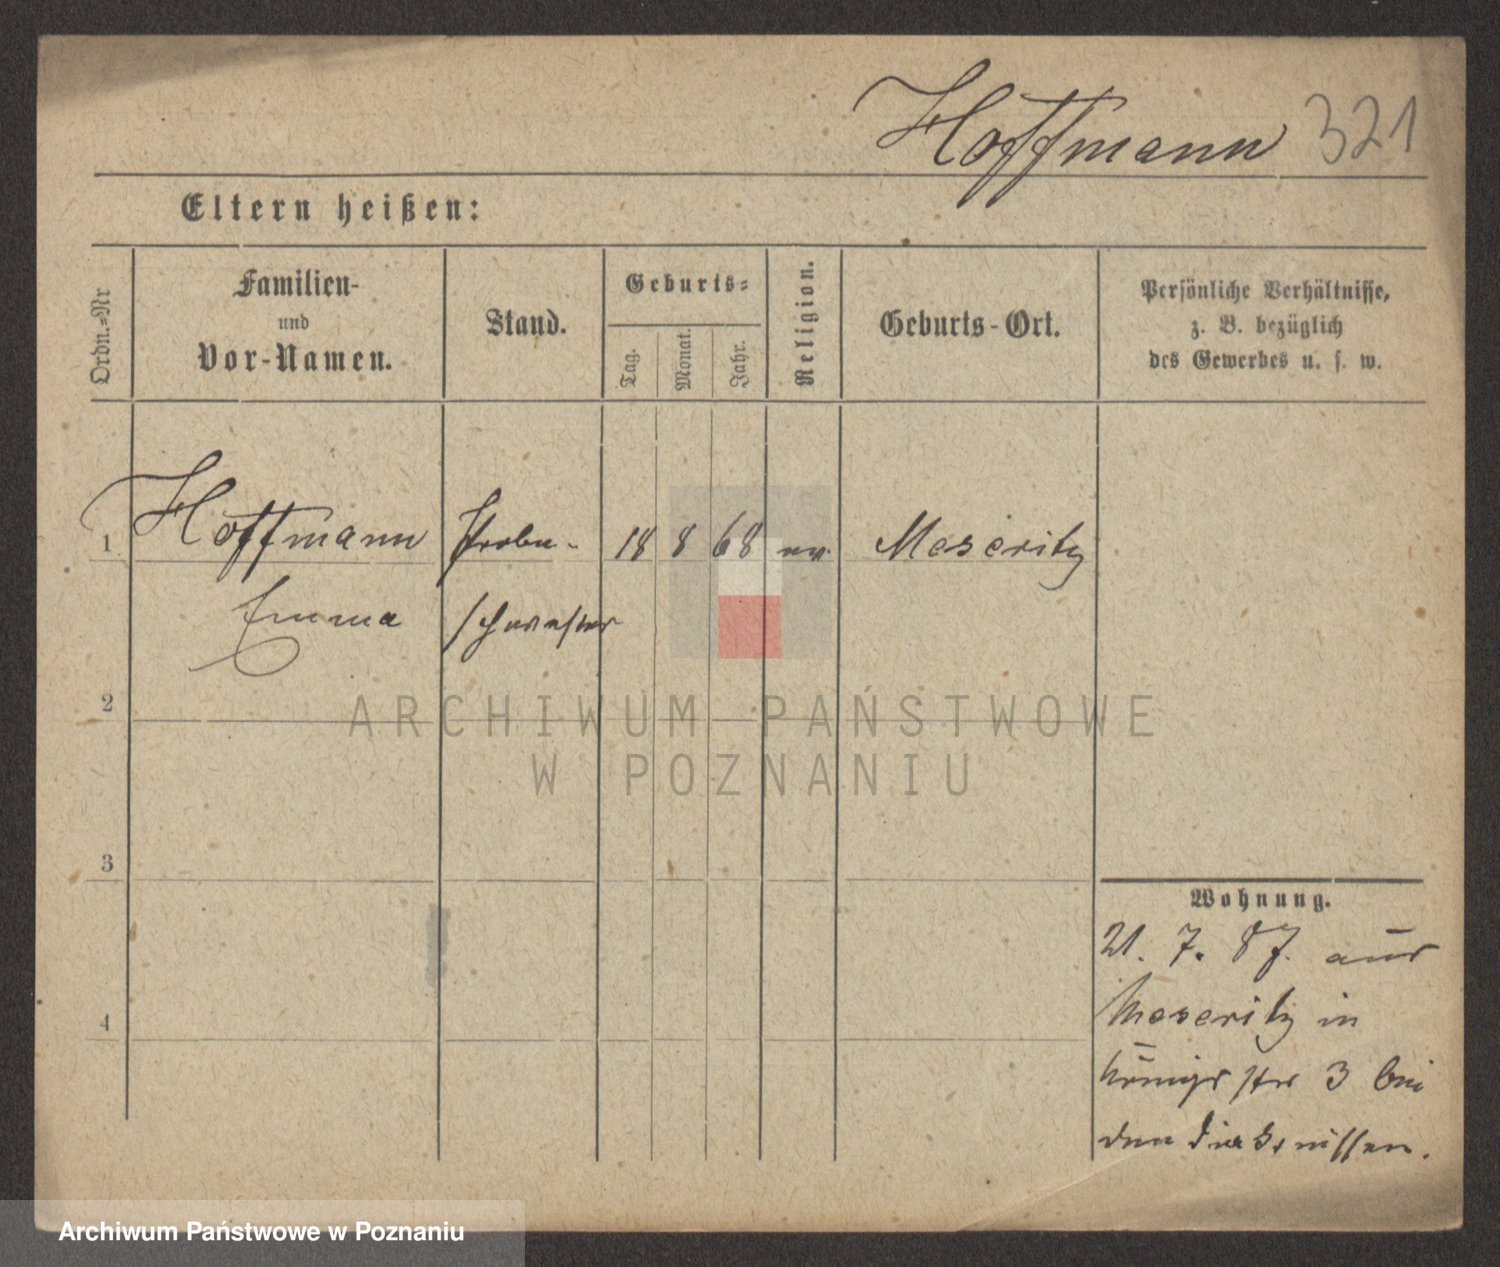 Hoffmann 321
Eltern heißen:
Ordn.=Nr
Familien-
und
Vor-Namen.
Stand.
Geburts=
Tag.
Monat.
Jahr.
Religion.
Geburts-Ort.
Persönliche Verhältnisse,
z. B. bezüglich
des Gewerbes u. s. w.
1 Hoffmann Probe- 18 8 68 ev. Meseritz
Emma schwester
2
3
4
Wohnung.
21. 7. 87. aus
Meseritz in
Königsstr 3 bei
den Diakonissen.
ARCHIWUM PAŃSTWOWE
W POZNANIU
Archiwum Państwowe w Poznaniu